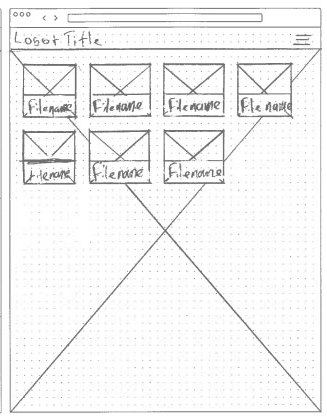 Logo+ Title
Filename Filename Filename Filename
Filename Filename Filename